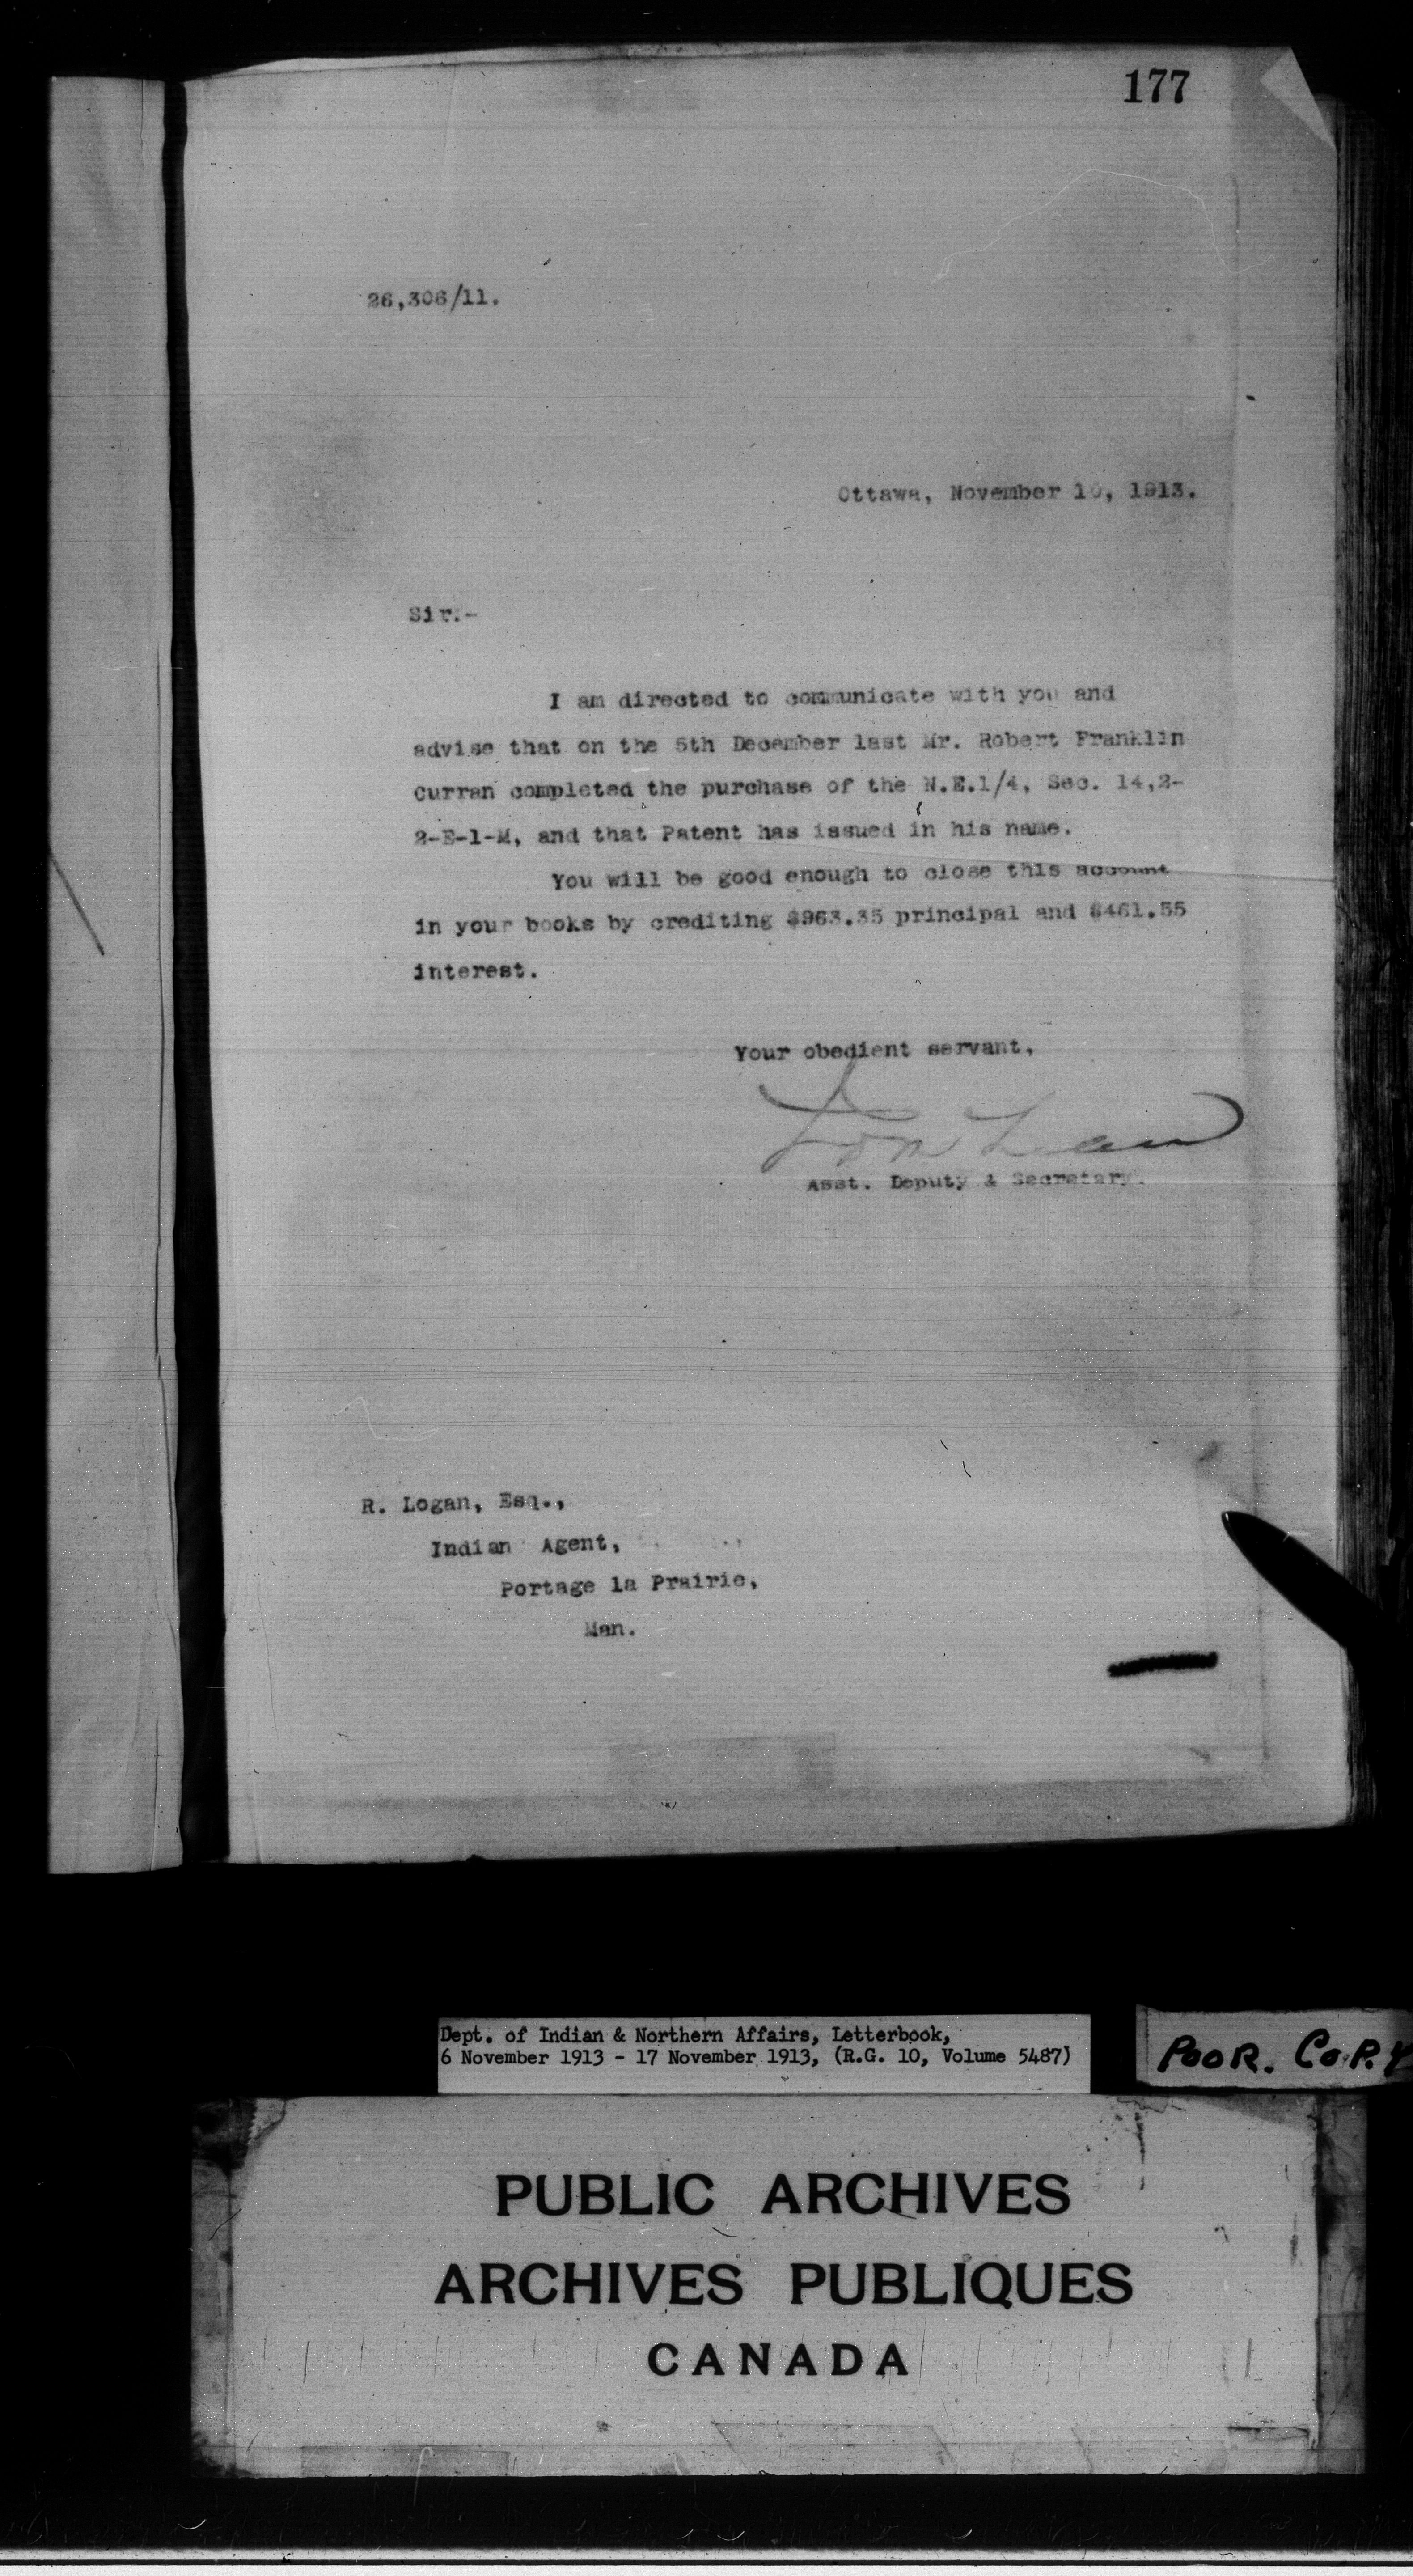 177
26,306/11.
Ottawa, November 10, 1913.
Sir:-
I am directed to communicate with you and
advise that on the 5th December last Mr. Robert Franklin
Curran completed the purchase of the N.E.1/4, Sec. 14,2-
2-E-1-M, and that Patent has issued in his name.
You will be good enough to close this account
in your books by crediting $963.35 principal and $461.55
interest.
Your obedient servant,
Asst. Deputy & Secretary.
R. Logan, Esq.,
Indian Agent,
Portage la Prairie,
Man.
Dept. of Indian & Northern Affairs, Letterbook,
6 November 1913 - 17 November 1913, (R.G. 10, Volume 5487)
POOR. COPY
PUBLIC ARCHIVES
ARCHIVES PUBLIQUES
CANADA